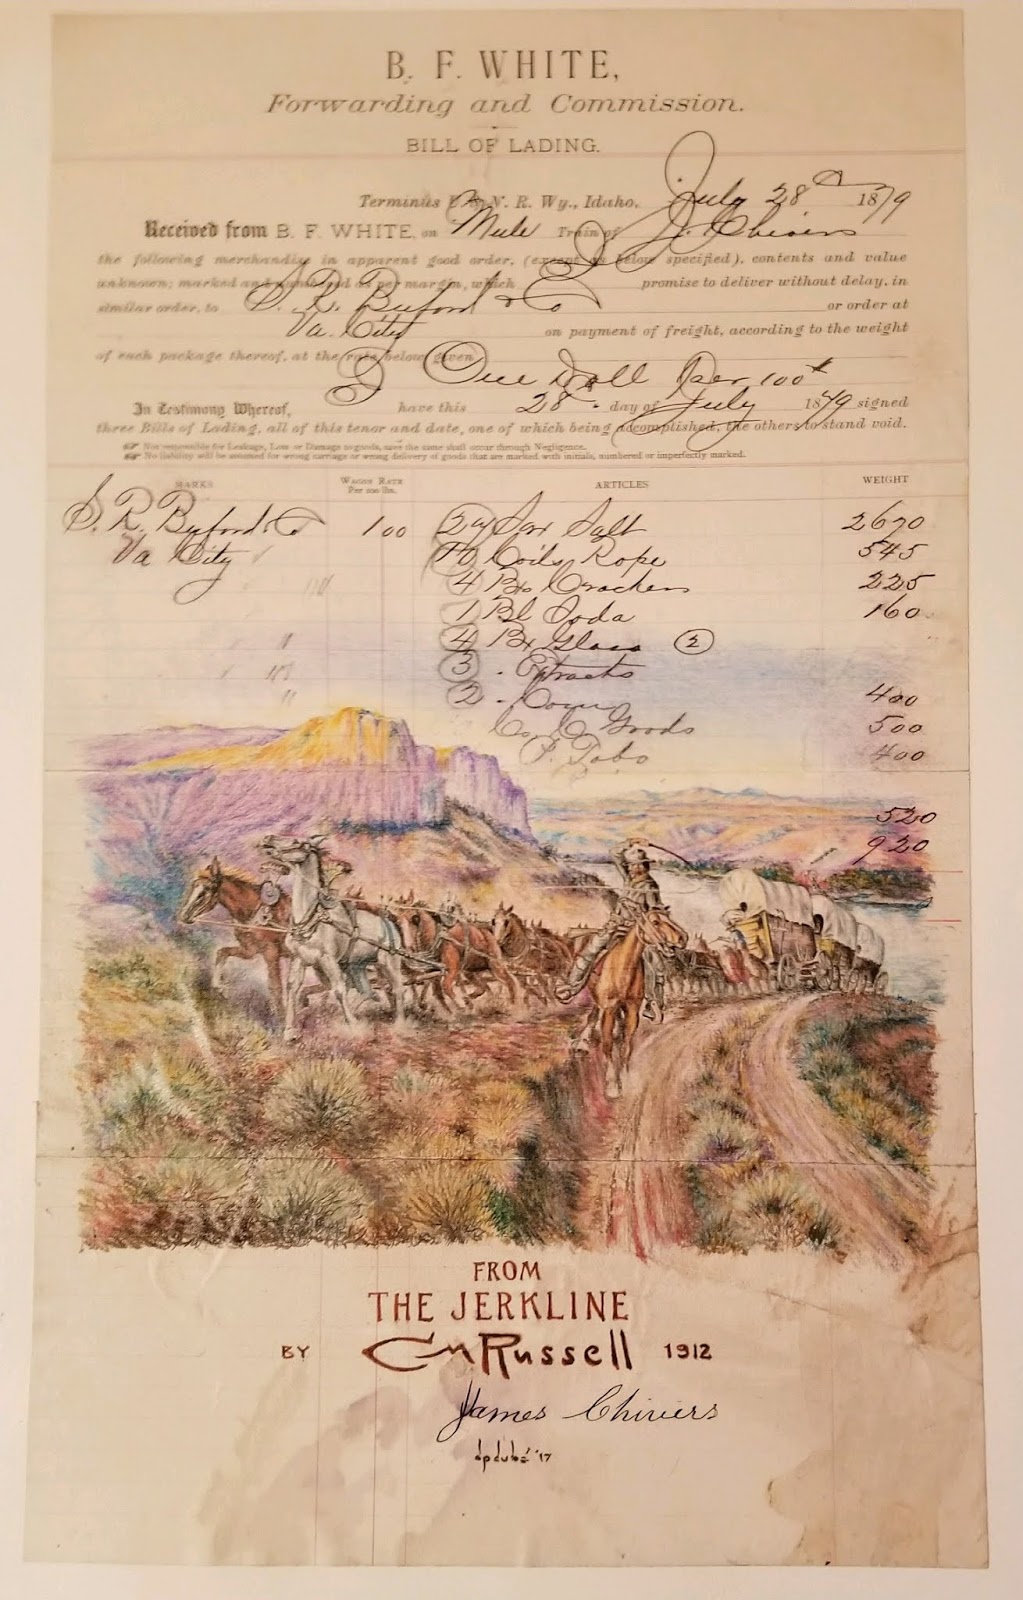 B. F. WHITE,
Forwarding and Commission.
BILL OF LADING.
Terminus U. & N. R. Wy., Idaho, July 28th 1879
Received from B. F. WHITE, on Mule Train of J. Chivers
the following merchandise in apparent good order, (except as below specified), contents and value
unknown; marked and numbered as per margin, which I promise to deliver without delay, in
similar order, to S. R. Buford & Co or order at
Va. City on payment of freight, according to the weight
of each package thereof, at the rate below given
One Doll Per 100#
In Testimony Whereof, I have this 28 day of July 1879 signed
three Bills of Lading, all of this tenor and date, one of which being accomplished, the others to stand void.
Not responsible for Leakage, Loss or Damage to goods, save the same shall occur through Negligence.
No liability will be assumed for wrong carriage or wrong delivery of goods that are marked with initials, numbered or imperfectly marked.
MARKS WAGON RATE Per 100 lbs. ARTICLES WEIGHT
S. R. Buford & Co 1 00 Salt 2670
Va City 10 Coils Rope 545
4 Bx Crackers 225
1 Bl Soda 160
4 Bx Glass 2
3 " Extracts
2 " 400
Goods 500
400
520
920
FROM
THE JERKLINE
BY CM Russell 1912
James Chivers
dpdubé '17